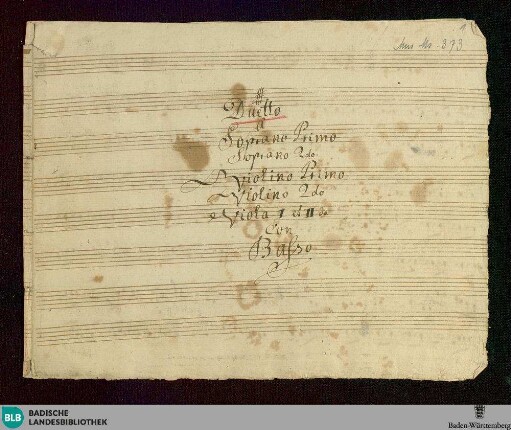 1
Mus. Ms. 373
Duetto
a
Soprano Primo
Soprano 2do
Violino Primo
Violino 2do
Viola I et II da
Con
Basso
BLB
BADISCHE
LANDESBIBLIOTHEK
Baden-Württemberg